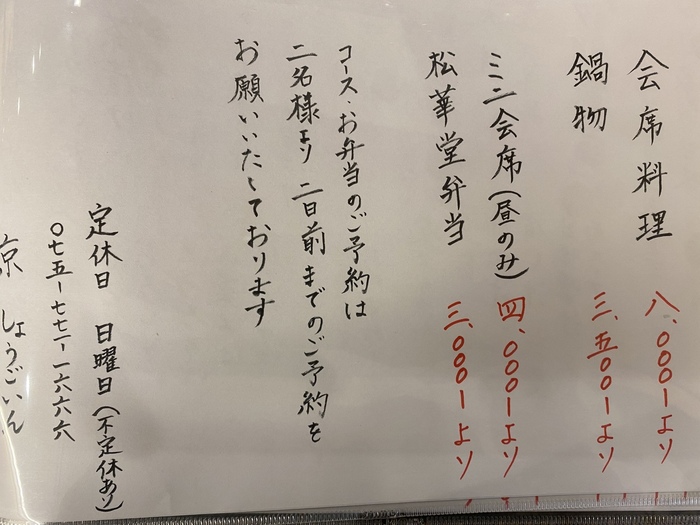 会席料理 八、〇〇〇ーより
鍋物 三、五〇〇ーより
ミニ会席(昼のみ) 四、〇〇〇ーより
松華堂弁当 三、〇〇〇ーより
コース・お弁当のご予約は
二名様より 二日前までのご予約を
お願いいたしております
定休日 日曜日(不定休あり)
〇七五ー七七一ー一六六六
京 しょうごいん